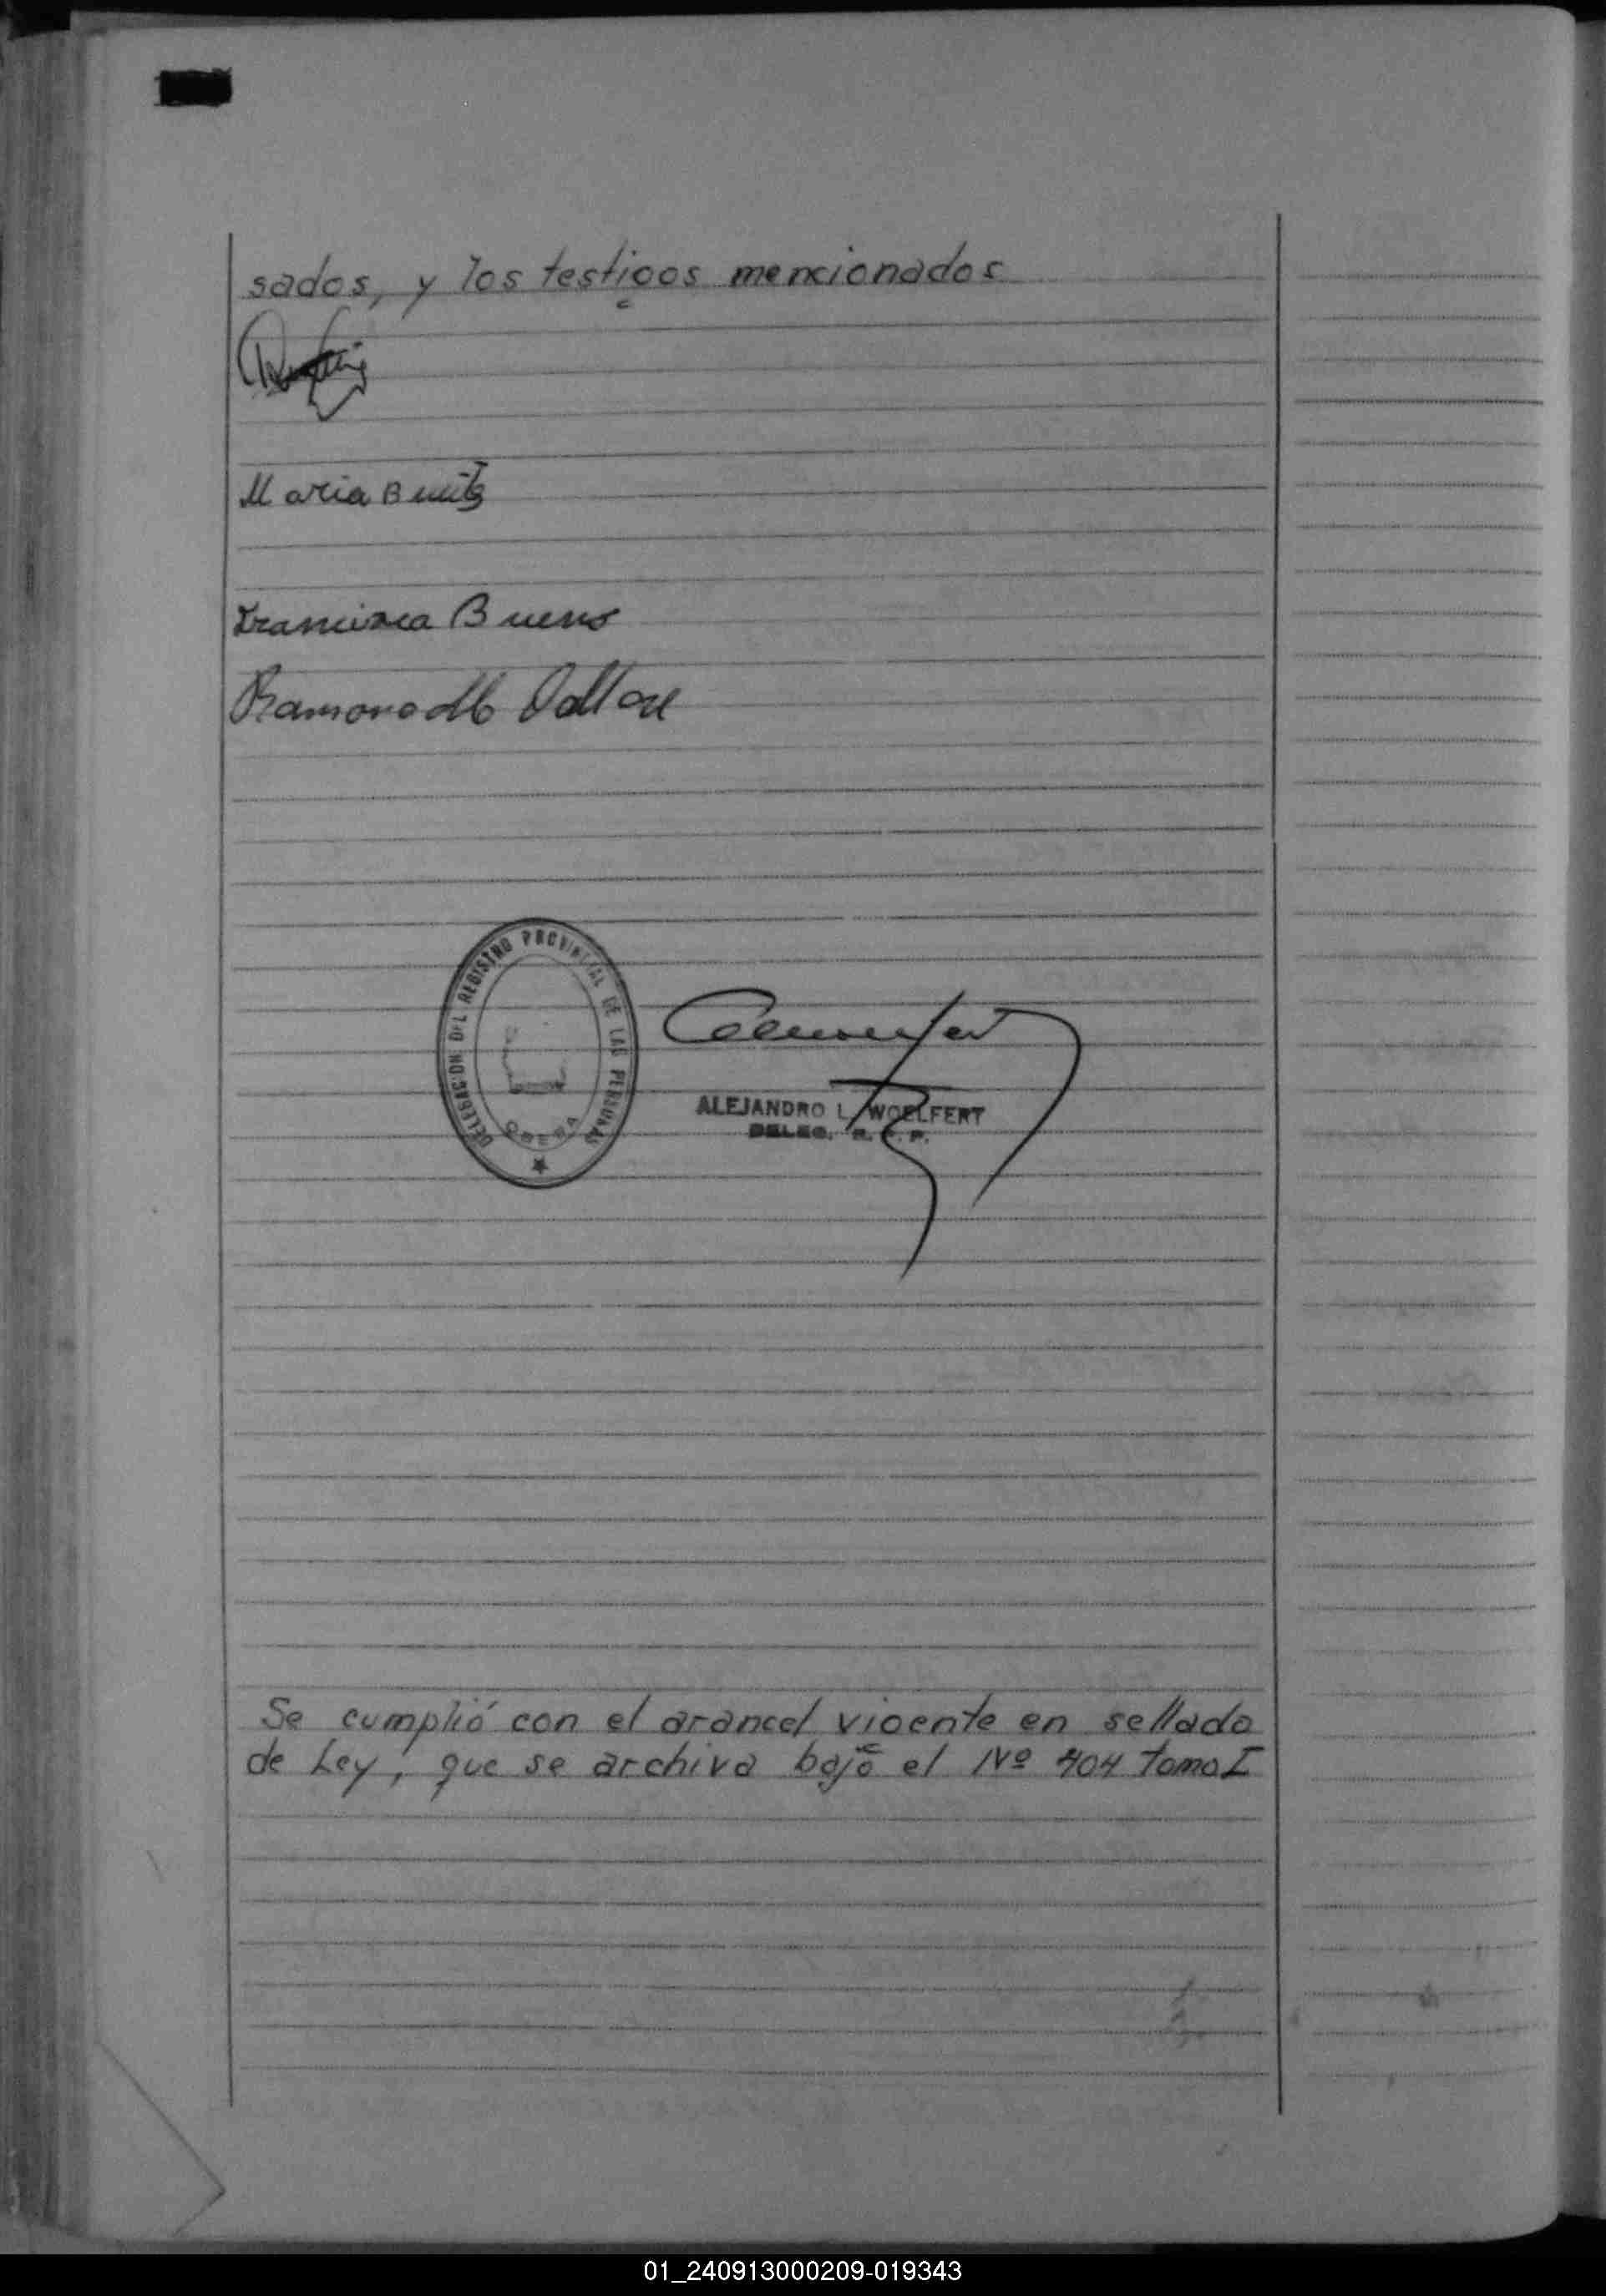 sados, y los testigos mencionados
Maria B
Francisca Bueno
Ramona
DELEGACION DEL REGISTRO PROVINCIAL DE LAS PERSONAS
OBERA
ALEJANDRO L. WOELFERT
DELEG. R. P. P.
Se cumplió con el arancel vigente en sellado
de Ley, que se archiva bajo el Nº 404 tomo I
01_240913000209-019343